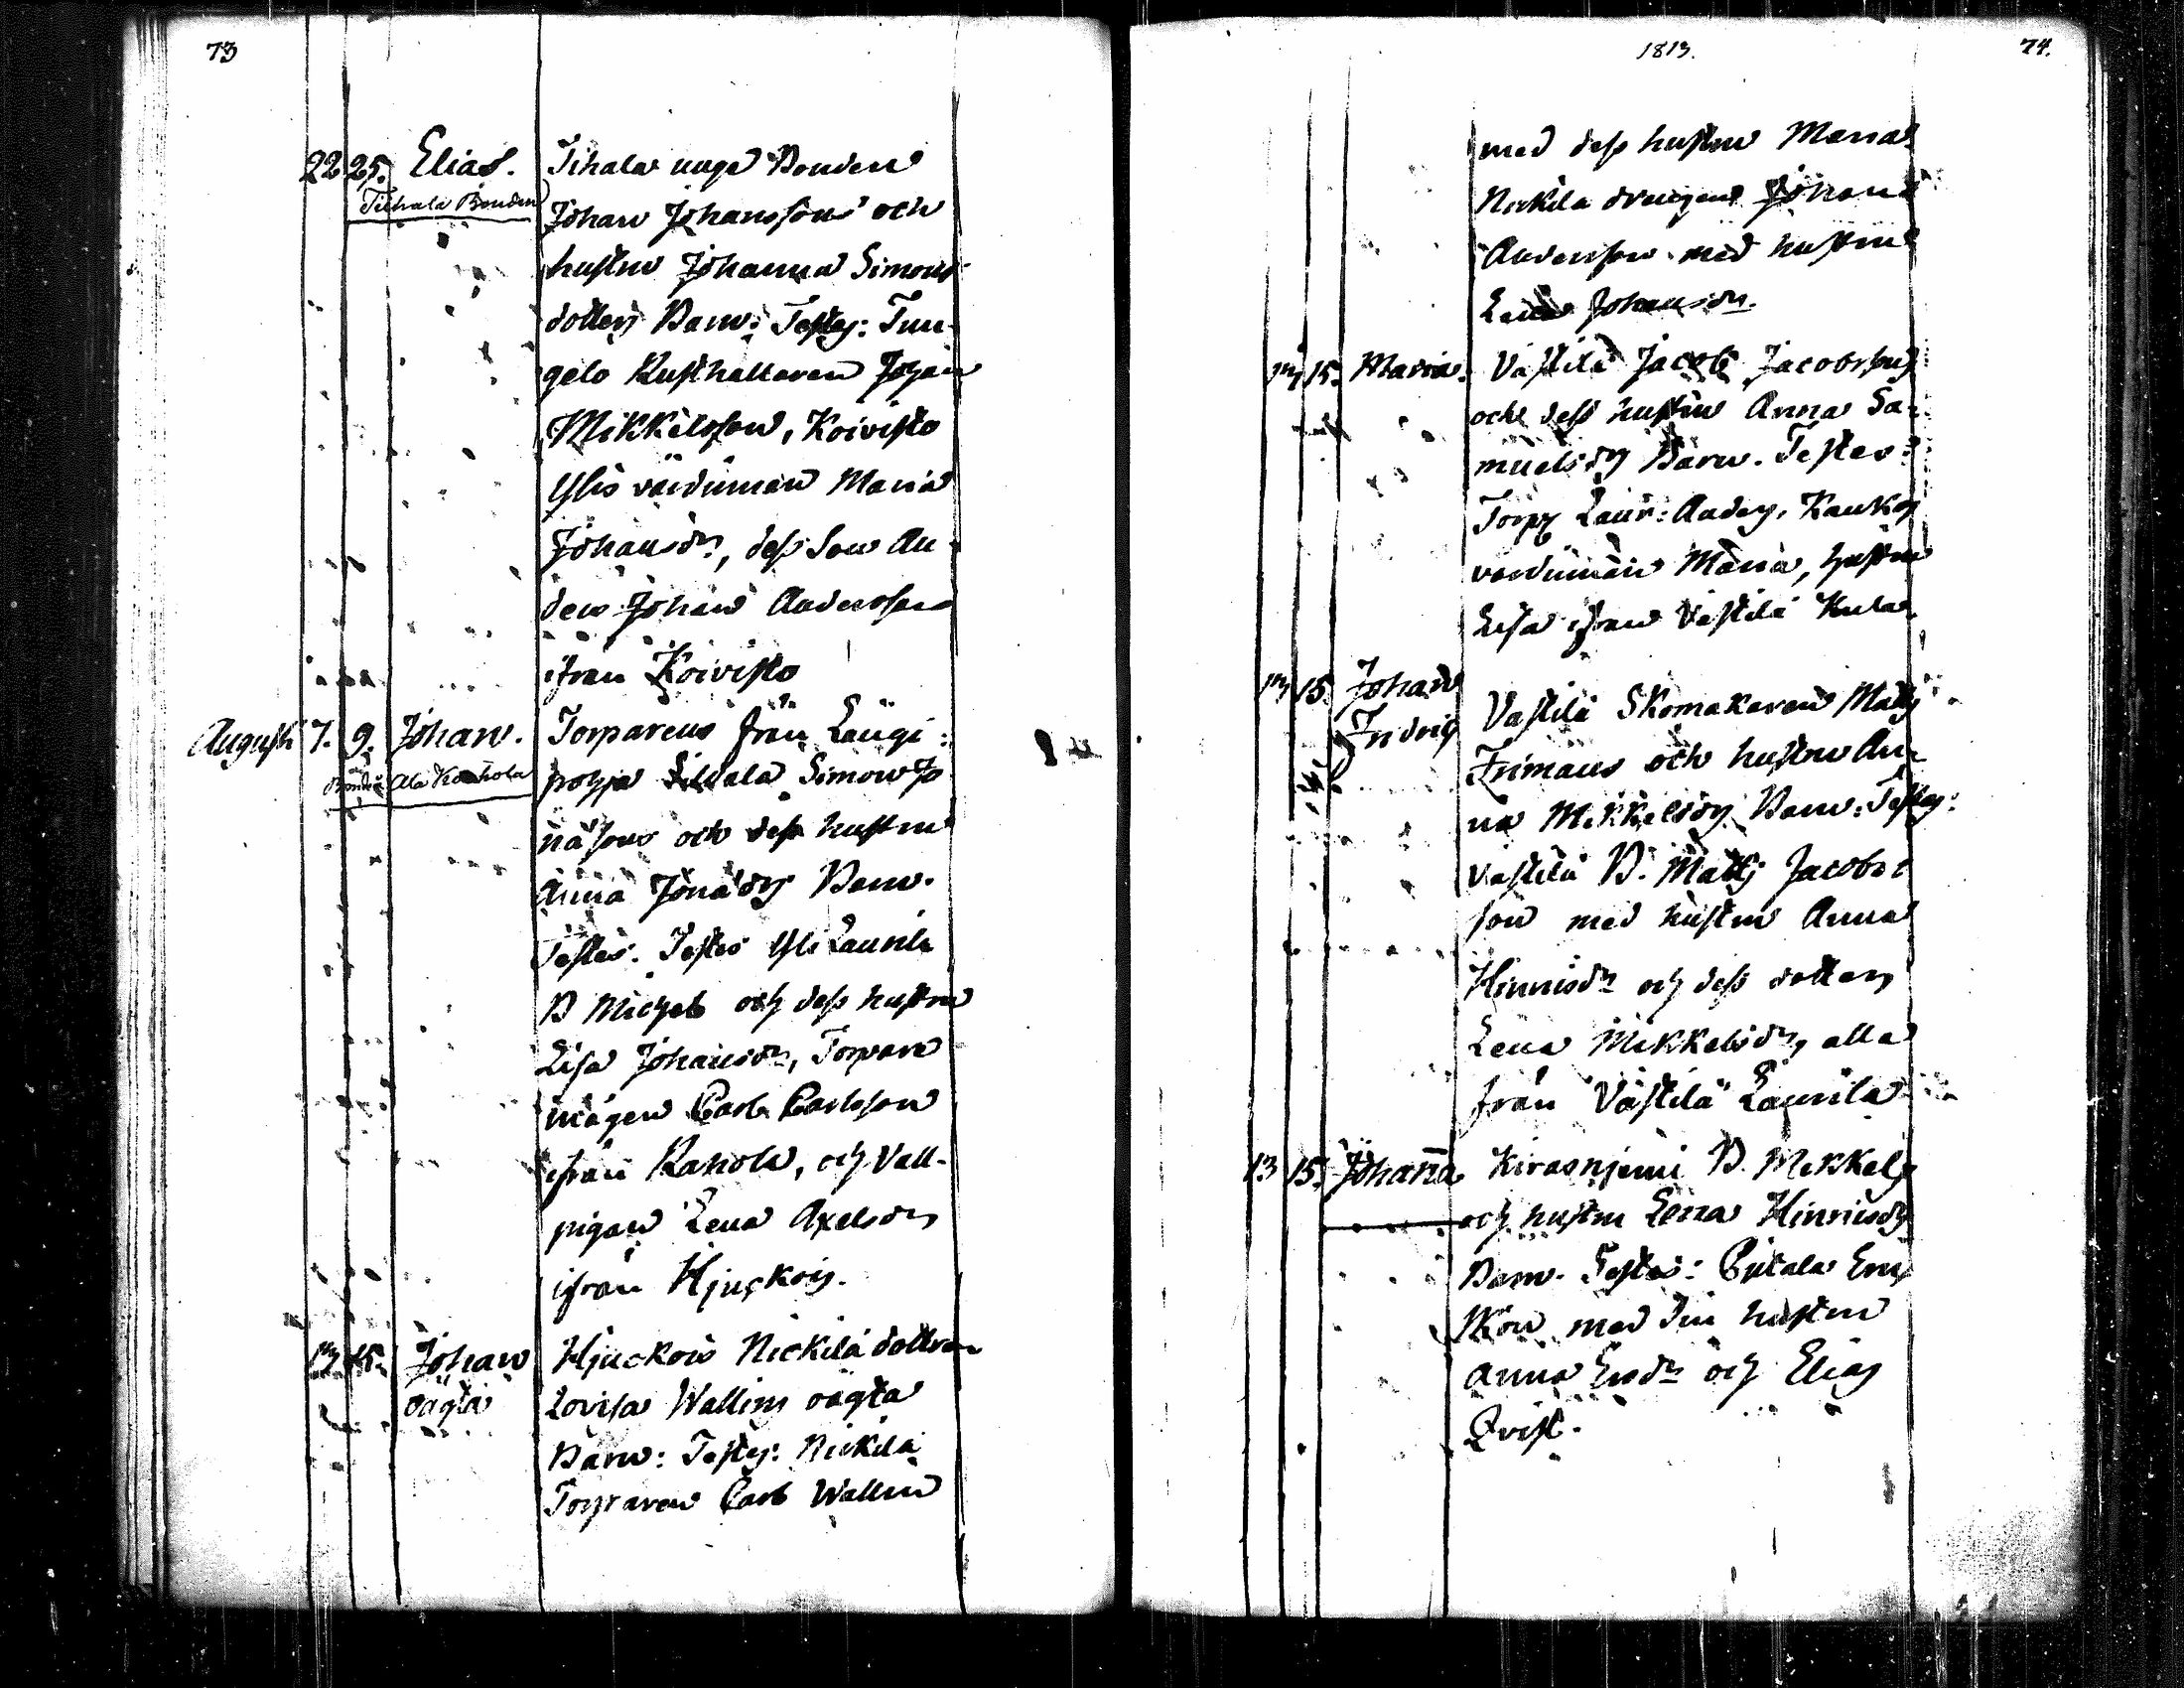 73
22 25. Elias. Tihala unge Bonden
Tiihala Bonden Johan Johanssons och
hustru Johanna Simons-
dotters Barn: Testes: Tun-
gelo Rusthallaren Johan
Mikkelsson, Koivisto
Ylis värdinnan Maria
Johansdr, dess Son An-
ders Johan Andersson
ifrån Koivisto
Augusti 7. 9. Johan. Torparens från Laugi-
Bondes Ala Kouhola pohja Sillala Simon Jo
näsons och dess hustru
Anna Jonädrs Barn.
Testes. Testes Yli Laurila
B Michel och dess hustru
Lisa Johansdr, Torpare
mågen Carl Carlsson
ifrån Kahola, och Vall-
pigan Lena Axelsdr
ifrån Hjuckois.
13. 15. Johan Hjuckois Nickilä dottren
oägta Lovisa Wallins oägta
Barn: Testes: Nickilä
Torparen Carl Wallin
1813. 74.
med dess hustru Maria
Nickilä drengen Johan
Andersson med hustru
Lena Johansdr.
13 15. Maria. Västilä Jacob Jacobssons
och dess hustru Anna Sa-
muelsdrs Barn. Testes:
Torp Laur: Anders, Kaukos
värdinnan Maria, hustru
Lisa ifrån Västilä Kula
13 15. Johan Västilä Skomakaren Matts
Fridrich Frimans och hustru An-
na Mikkelsdrs Barn: Testes:
Västilä B. Matts Jacobs-
son med hustru Anna
Hinrisdr och dess dotter
Lena Mikkelsdr, alla
från Västilä Laurila
13 15. Johana Kirasnjemi B. Mikkels
och hustru Lena Hinrisdrs
Barn. Testes: Eric
med sin hustru
Anna Ersdr och Elias
Qvist.